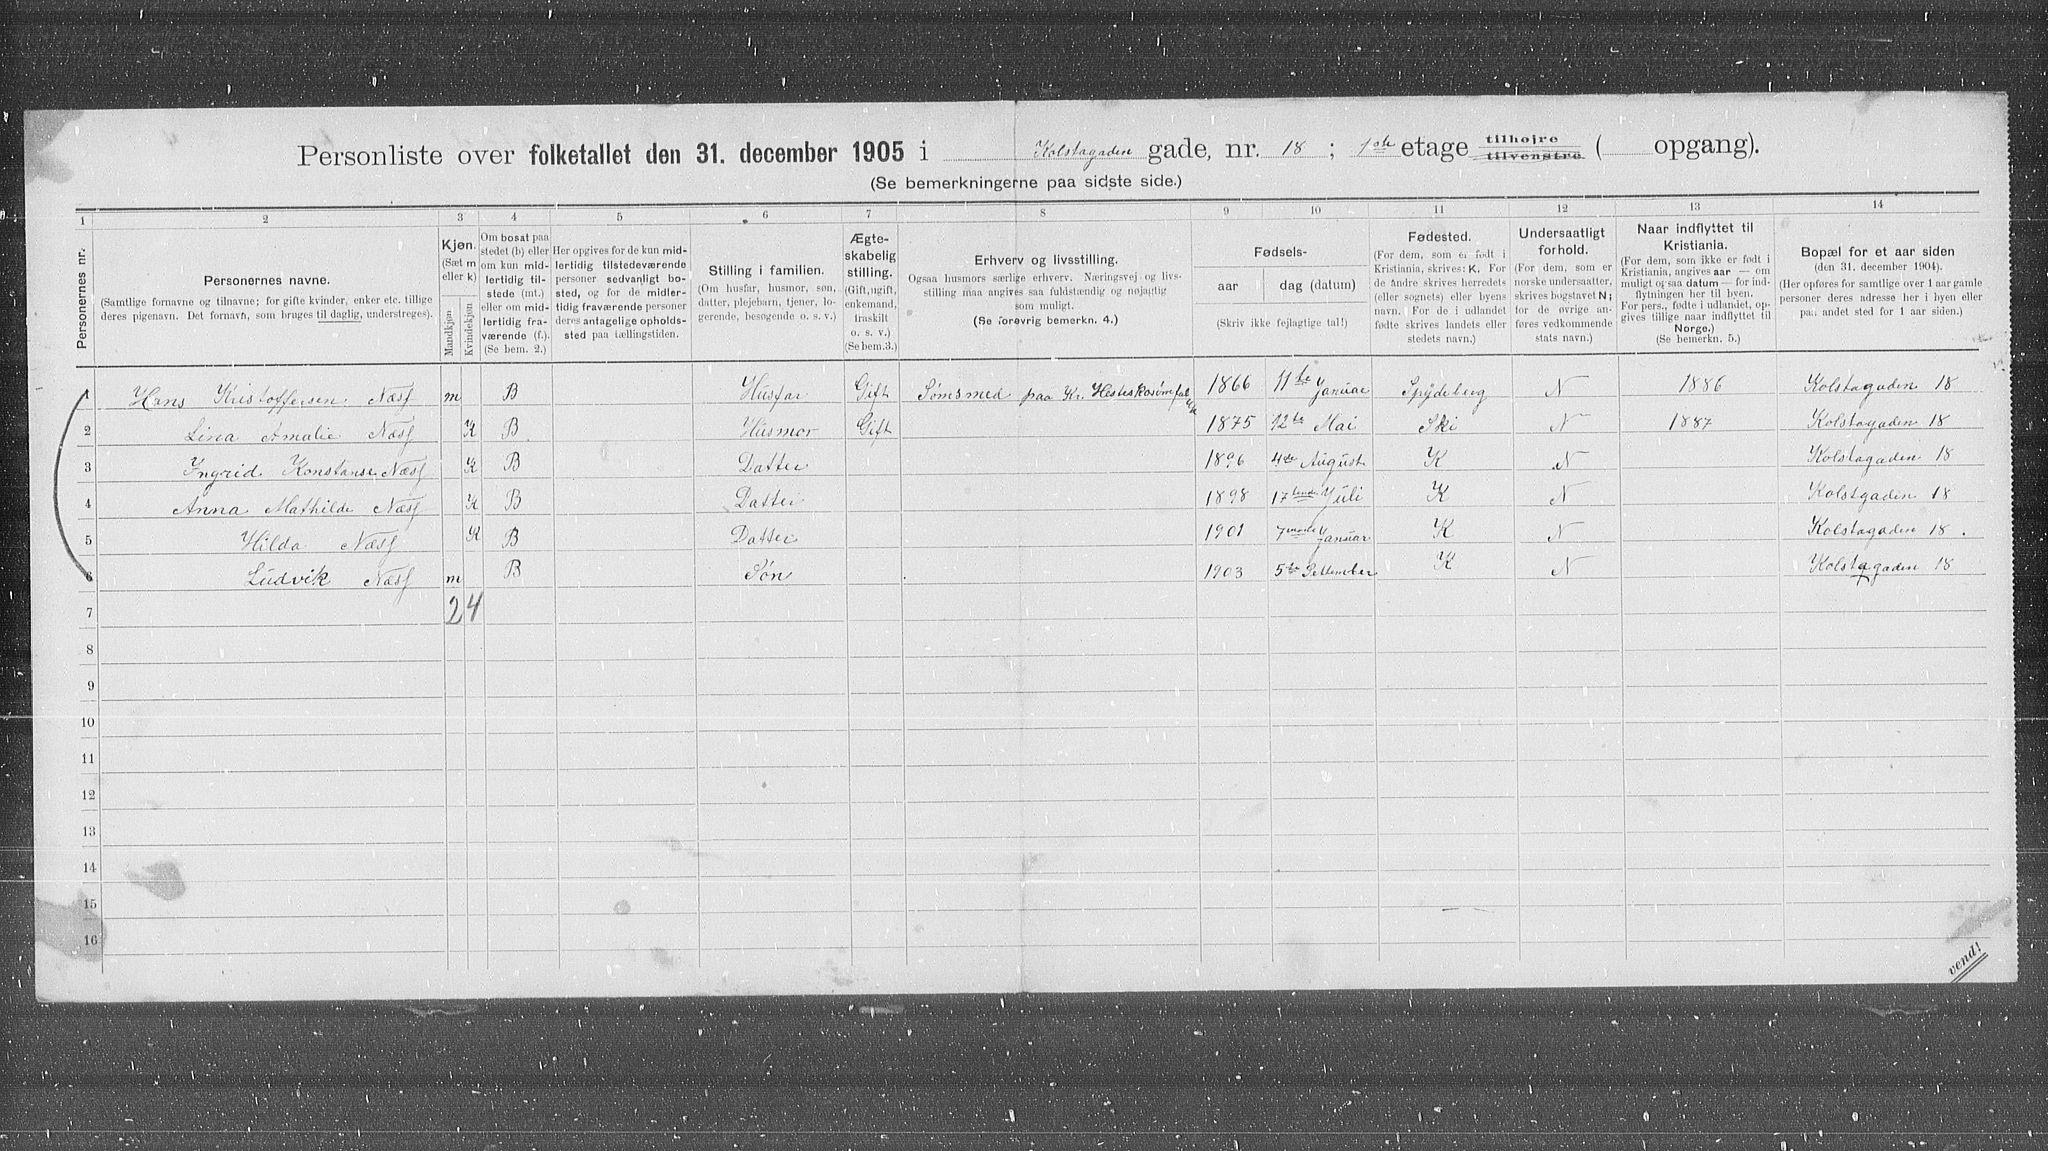 Personliste over folketallet den 31. december 1905 i Kolstagaden gade, nr. 18 ; 1ste etage tilhøjre tilvenstre ( opgang).
(Se bemerkningerne paa sidste side.)
1 2 3 4 5 6 7 8 9 10 11 12 13 14
Personernes nr.
Personernes navne.
(Samtlige fornavne og tilnavne; for gifte kvinder, enker etc. tillige
deres pigenavn. Det fornavn, som bruges til daglig, understreges).
Kjøn.
(Sæt m
eller k)
Mandkjøn
Kvindekjøn
Om bosat paa
stedet (b) eller
om kun mid-
lertidig til-
stede (mt.)
eller om mid-
lertidig fra-
værende (f.).
(Se bem. 2.)
Her opgives for de kun mid-
lertidig tilstedeværende
personer sedvanligt bo-
sted, og for de midler-
tidig fraværende personer
deres antagelige opholds-
sted paa tællingstiden.
Stilling i familien.
(Om husfar, husmor, søn,
datter, plejebarn, tjener, lo-
gerende, besøgende o. s. v.)
Ægte-
skabelig
stilling.
(Gift, ugift,
enkemand,
fraskilt
o. s. v.)
(Se bem.3.)
Erhverv og livsstilling.
Ogsaa husmors særlige erhverv. Næringsvej og livs-
stilling maa angives saa fuldstændig og nøjagtig
som muligt.
(Se forøvrig bemerkn. 4.)
Fødsels-
aar dag (datum)
(Skriv ikke fejlagtige tal!)
Fødested.
(For dem, som er født i
Kristiania, skrives: K. For
de andre skrives herredets
(eller sognets) eller byens
navn. For de i udlandet
fødte skrives landets eller
stedets navn.)
Undersaatligt
forhold.
(For dem, som er
norske undersaatter,
skrives bogstavet N;
for de øvrige an-
føres vedkommende
stats navn.)
Naar indflyttet til
Kristiania.
(For dem, som ikke er født i
Kristiania, angives aar — om
muligt ogsaa datum — for ind-
flytningen her til byen.
For pers., fødte i udlandet, op-
gives tillige naar indflyttet til
Norge.)
(Se bemerkn. 5.)
Bopæl for et aar siden
(den 31. december 1904).
(Her opføres for samtlige over 1 aar gamle
personer deres adresse her i byen eller
paa andet sted for 1 aar siden.)
1 Hans Kristoffersen Næss m B Husfar Gift Sømsmed paa Kr. Hesteskosømfab 1866 11te Januar Spydeberg N 1886 Kolstagaden 18
2 Lina Amalie Næss K B Husmor Gift 1875 12te Mai Ski N 1887 Kolstagaden 18
3 Ingrid Konstanse Næss K B Datter 1896 4de August K N Kolstagaden 18
4 Anna Mathilde Næss K B Datter 1898 17tende Juli K N Kolstgaden 18
5 Hilda Næss K B Datter 1901 7vende Januar K N Kolstagaden 18.
6 Ludvik Næss m B Søn 1903 5te Settember K N Kolstagaden 18
7 2 4
8
9
10
11
12
13
14
15
16
vend!